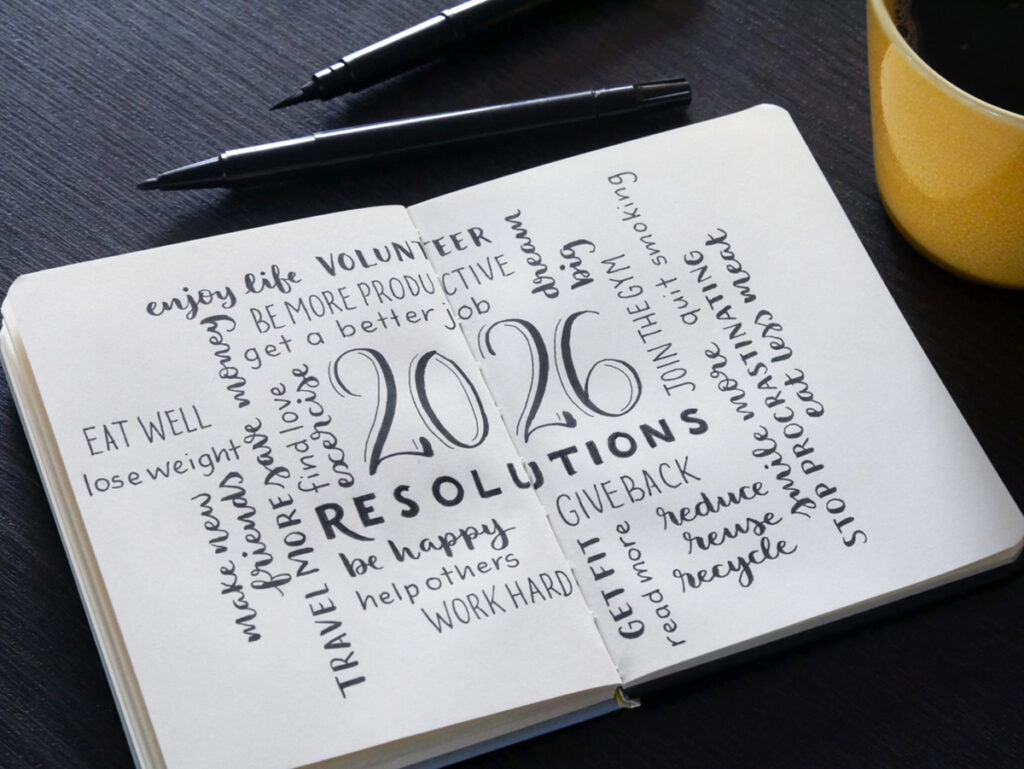 enjoy life
VOLUNTEER
BE MORE PRODUCTIVE
get a better job
dream
big
quit smoking
JOIN THE GYM
EAT WELL
lose weight
make new
friends
save money
TRAVEL MORE
find love
exercise
2026
RESOLUTIONS
be happy
help others
WORK HARD
GIVE BACK
GET FIT
read more
reduce
reuse
recycle
smile more
STOP PROCRASTINATING
eat less meat